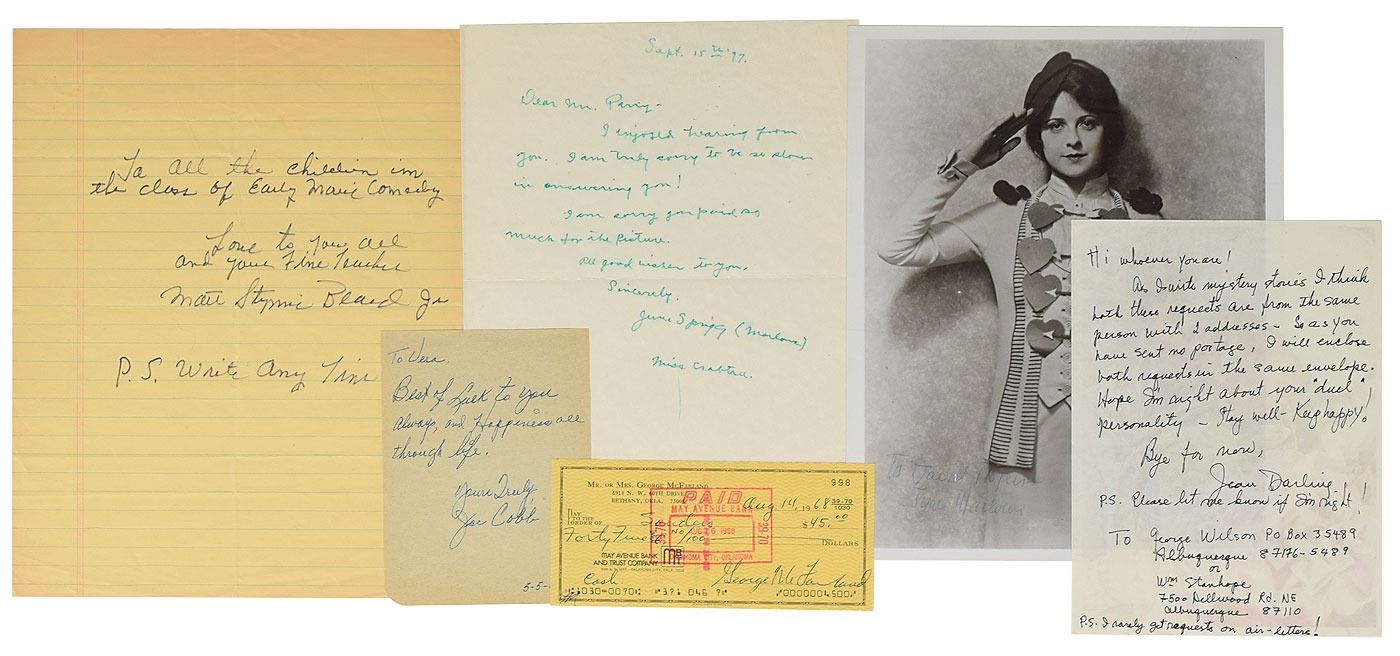 To all the children in
the class of Early Movie Comedy
Love to you all
and your Fine Teacher
Matt Stymie Beard Jr
P.S. Write Any Time
To Vera.
Best of Luck to you
Always, and Happiness all
through life.
Yours Truly,
Joe Cobb
5-5-
Sept. 15th '77.
Dear Mr. Parry-
I enjoyed hearing from
you. I am truly sorry to be so slow
in answering you!
I am sorry you paid so
much for the picture.
All good wishes to you,
Sincerely,
June Sprigg (Marlowe)
Miss Crabtree.
MR. OR MRS. GEORGE MCFARLAND
4914 N. W. 60TH DRIVE
BETHANY, OKLA. 73008
998
Aug 14, 1968
39-70
1030
PAY
TO THE
ORDER OF
Sanders
$45.00
Forty Five & No/100
DOLLARS
PAID
MAY AVENUE BANK
39-70
OKLAHOMA CITY, OKLAHOMA
MAY AVENUE BANK
AND TRUST COMPANY
Cash
George McFarland
To David
June Marlowe
Hi whoever you are!
As I write mystery stories I think
both these requests are from the same
person with 2 addresses - So as you
have sent no postage, I will enclose
both requests in the same envelope.
Hope I'm right about your "duel"
personality - Stay well - Keep happy!
Bye for now,
Jean Darling
P.S. Please let me know if I'm right!
To George Wilson PO Box 35489
Albuquerque 87176-5489
or
Wm Stanhope
7500 Dellwood Rd. NE
Albuquerque 87110
P.S. I rarely get requests on air-letters!